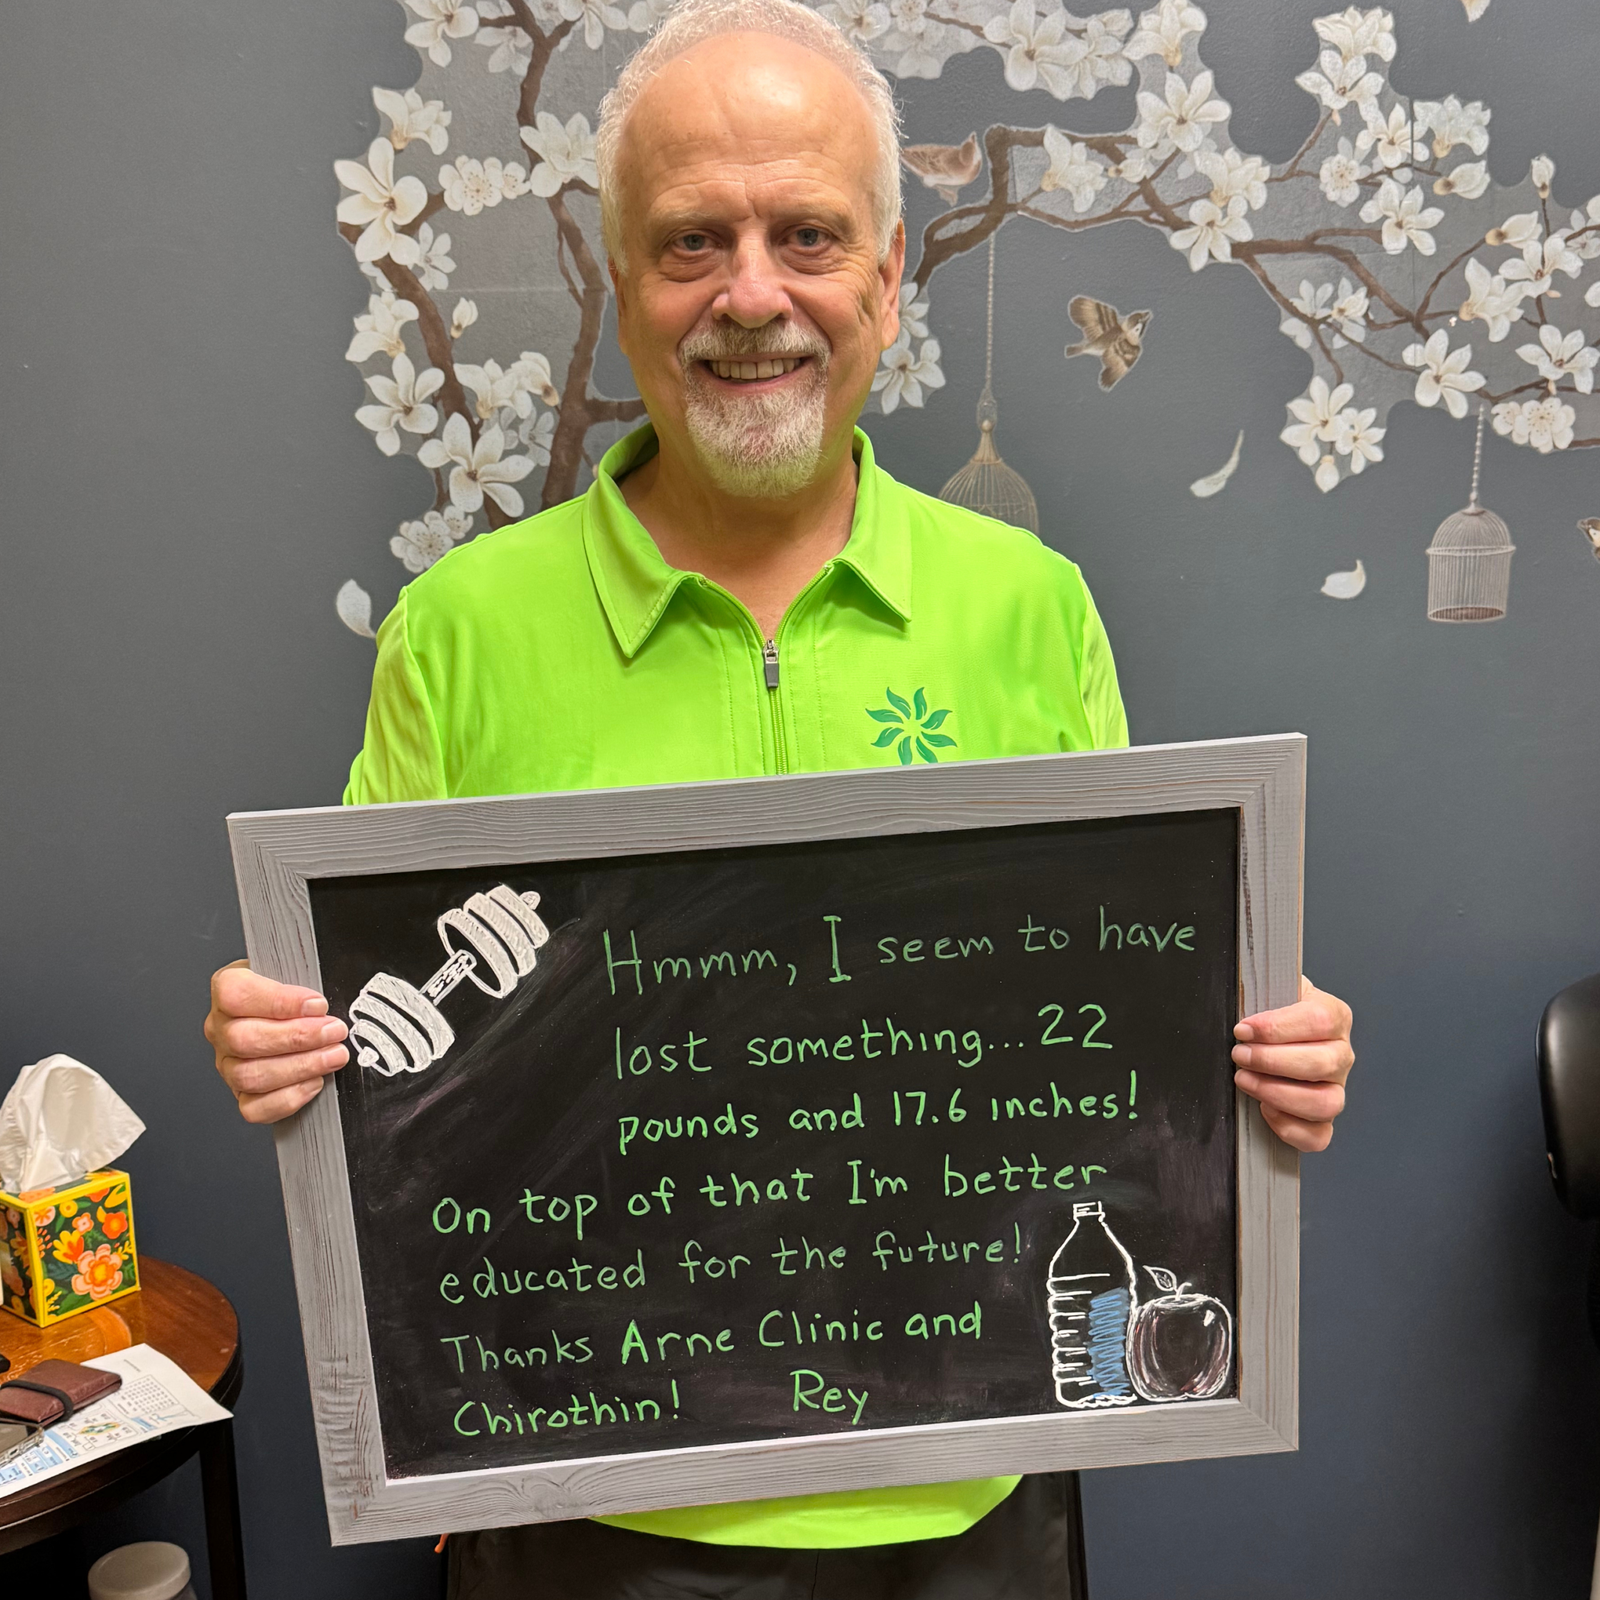 Hmmm, I seem to have
lost something...22
pounds and 17.6 inches!
On top of that I'm better
educated for the future!
Thanks Arne Clinic and
Chirothin! Rey